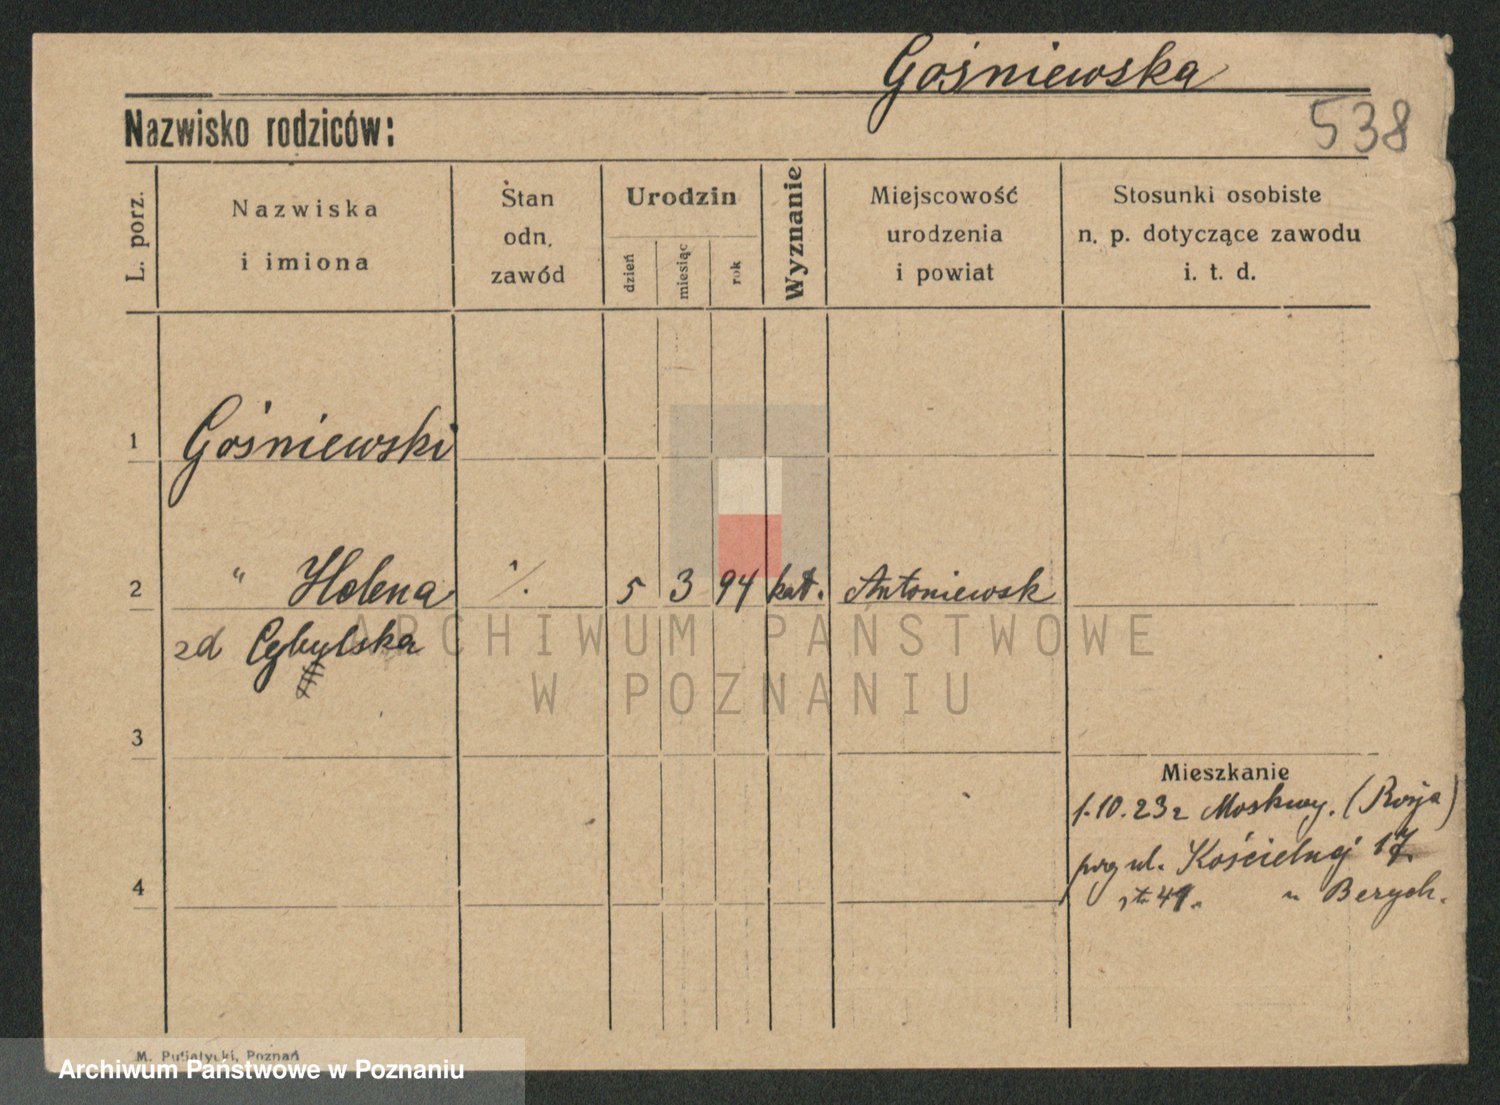 Gośniewska
538
Nazwisko rodziców:
L. porz.
Nazwiska
i imiona
Stan
odn.
zawód
Urodzin
dzień
miesiąc
rok
Wyznanie
Miejscowość
urodzenia
i powiat
Stosunki osobiste
n. p. dotyczące zawodu
i. t. d.
1 Gośniewski
2 " Helena ./. 5 3 94 kat. Antoniewsk
zd Cybylska
ARCHIWUM PAŃSTWOWE
W POZNANIU
3
Mieszkanie
1.10.23 z Moskwy. (Rosja)
przy ul. Kościelnej 17.
4
u Berych.
M. Putiatycki, Poznań
Archiwum Państwowe w Poznaniu